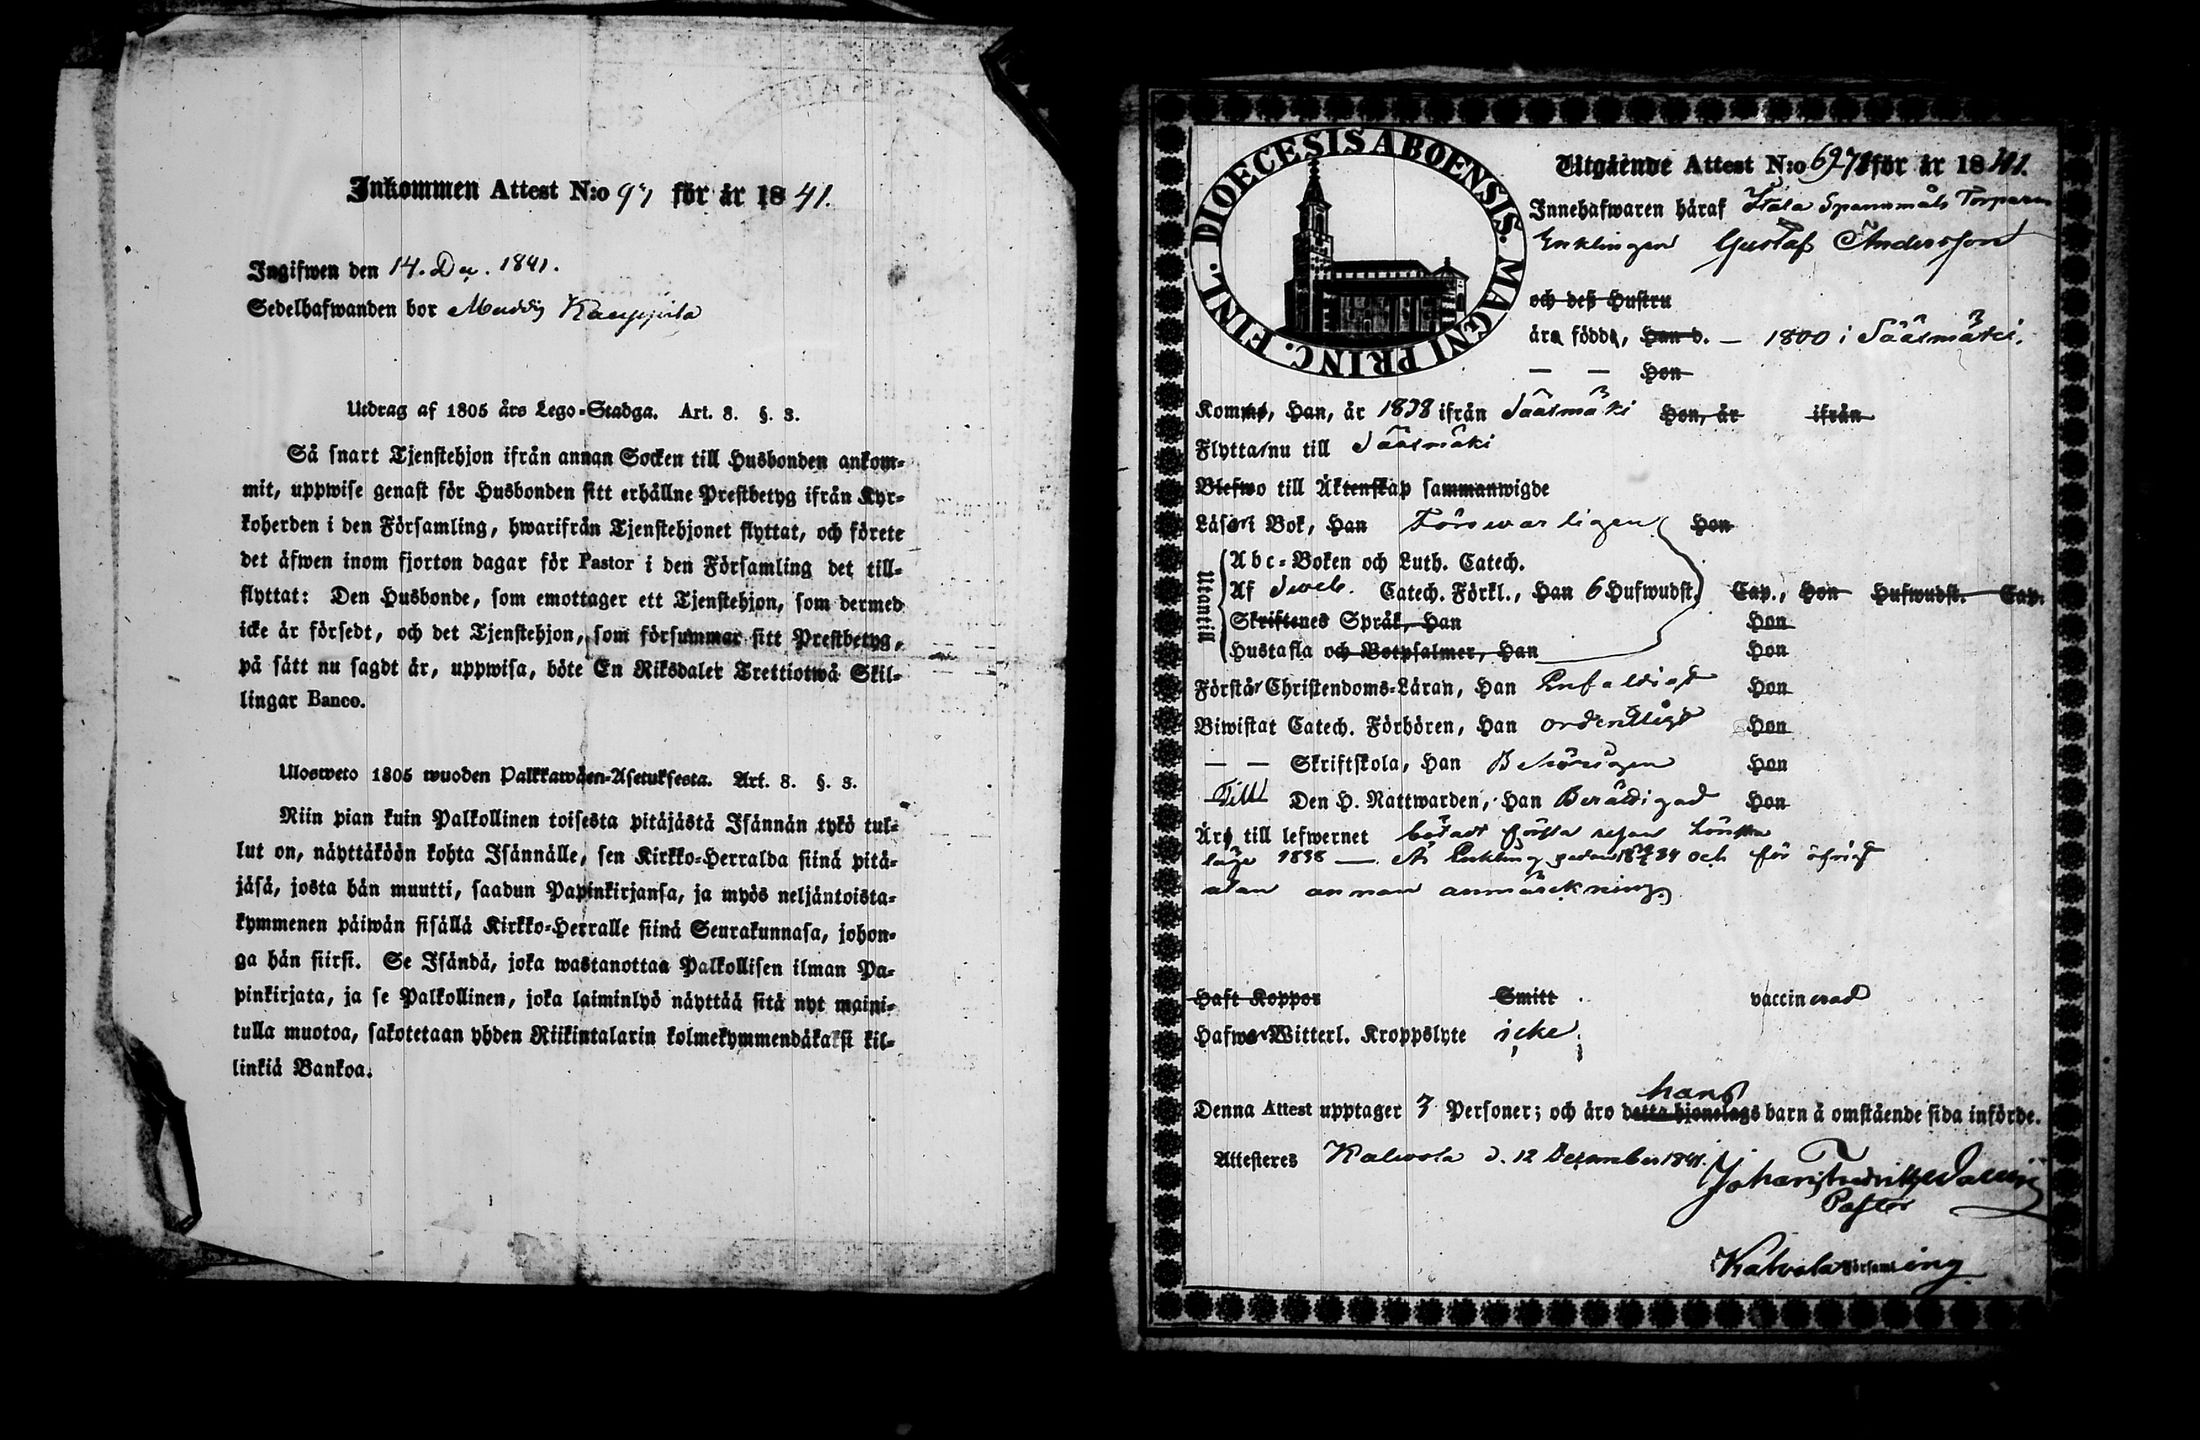 Inkommen Attest N:o 97 för år 1841.
Ingifwen den 14. Dec. 1841.
Sedelhafwanden bor Muddis Kauppila
Utdrag af 1805 års Lego-Stadga. Art. 8. §. 3.
Så snart Tjenstehjon ifrån annan Socken till Husbonden ankom-
mit, uppwise genast för Husbonden sitt erhållne Prestbetyg ifrån Kyr-
koherden i den Församling, hwarifrån Tjenstehjonet flyttat, och förete
det äfwen inom fjorton dagar för Pastor i den Församling det till-
flyttat: Den Husbonde, som emottager ett Tjenstehjon, som dermed
icke är försedt, och det Tjenstehjon, som försummar sitt Prestbetyg,
på sätt nu sagdt är, uppwisa, böte En Riksdaler Trettiotwå Skil-
lingar Banco.
Ulosweto 1805 wuoden Palkkawäen-Asetuksesta. Art. 8. §. 3.
Niin pian kuin Palkollinen toisesta pitäjästä Isännän tykö tul-
lut on, näyttäköön kohta Isännälle, sen Kirkko-Herralda siinä pitä-
jäsä, josta hän muutti, saadun Papinkirjansa, ja myös neljäntoista-
kymmenen päiwän sisällä Kirkko-Herralle siinä Seurakunnasa, johon-
ga hän siirsi. Se Isändä, joka wastanottaa Palkollisen ilman Pa-
pinkirjata, ja se Palkollinen, joka laiminlyö näyttää sitä nyt maini-
tulla muotoa, sakotetaan yhden Riikintalarin kolmekymmendäkaksi kil-
linkiä Bankoa.
DIOECESIS ABOENSIS. MAGNI PRINC. FINL.
Utgående Attest N:o 69-71 för år 1841.
Innehafwaren häraf Spannmåls Torparen
Enklingen Gustaf Andersson
och deß Hustru
äro födde, Han d. — 1800 i Sääxmäki.
— — Hon
Kommo, Han, år 1838 ifrån Sääxmäki Hon, år ifrån
Flytta nu till Sääxmäki
Blefwo till Äktenskap sammanwigde
Läsa i Bok, Han Förswarligen Hon
Utantill
Abc-Boken och Luth. Catech.
Af Sweb. Catech. Förkl., Han 6 Hufwudst. Cap., Hon Hufwudst. Cap.
Skriftenes Språk, Han Hon
Hustafla och Botpsalmer, Han Hon
Förstår Christendoms-Läran, Han Enfaldigt Hon
Biwistat Catech. Förhören, Han ordentligt Hon
— — Skriftskola, Han Behörigen Hon
Till Den H. Nattwarden, Han Berättigad Hon
Äro till lefwernet bötadt första resan
1838 — Är Enkling sedan och för öfrigt
utan annan anmärkning.
Haft Koppor Smitt vaccinerad
Hafwa Witterl. Kroppslyte icke
Denna Attest upptager 3 Personer; och äro detta hjonelags hans barn å omstående sida införde.
Attesteres Kalvola d. 12 December 1841.
Pastor
Kalvola Församling